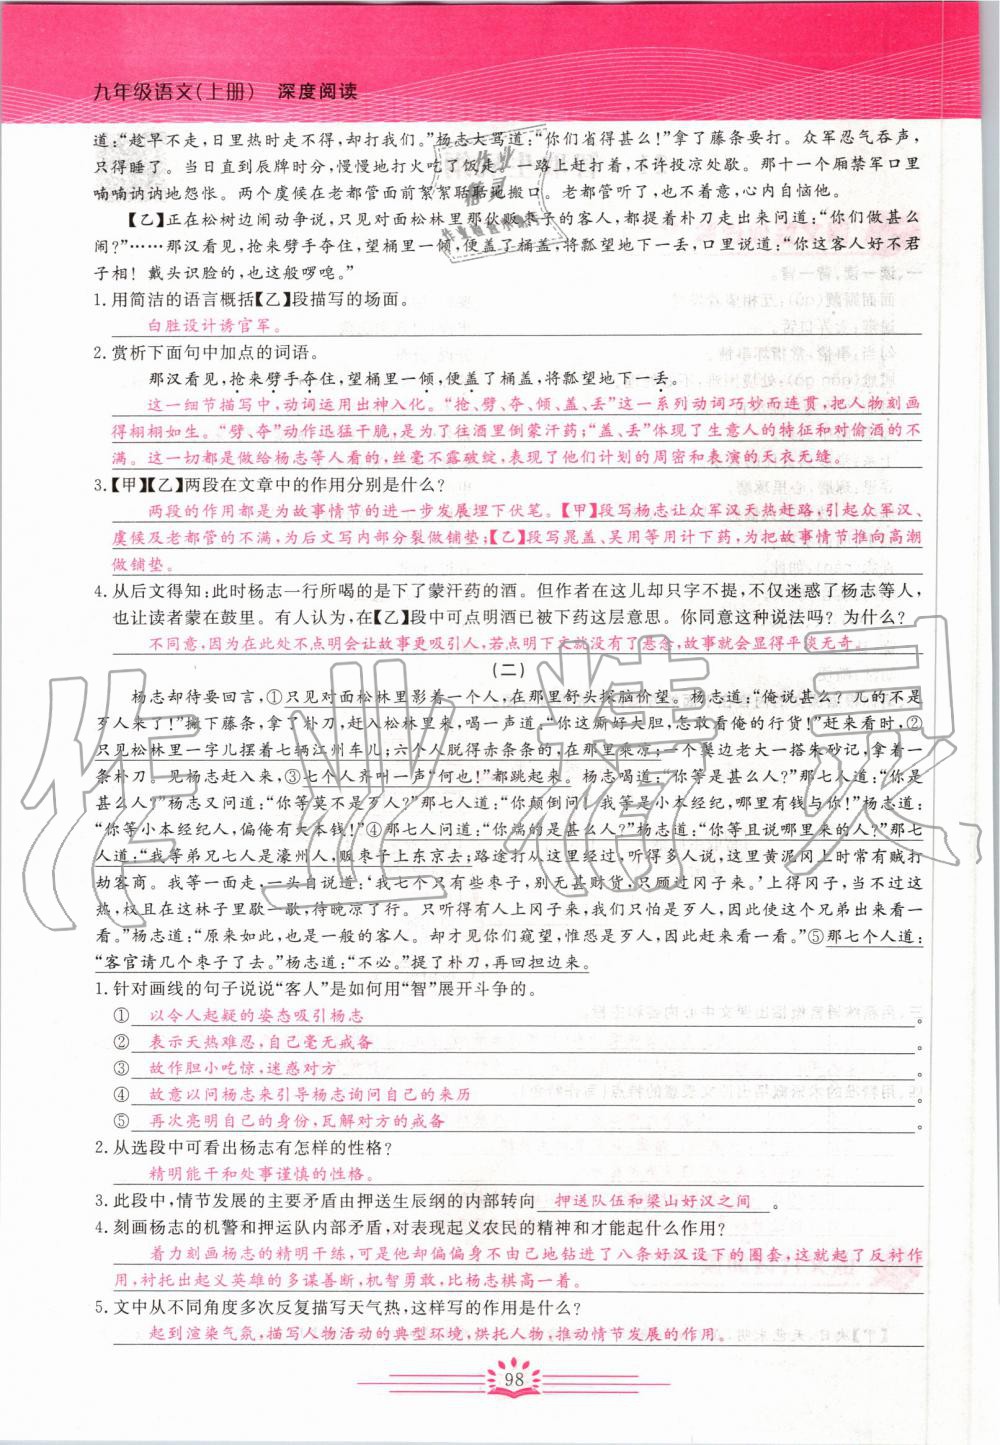 九年级语文(上册)　深度阅读
道:“趁早不走,日里热时走不得,却打我们。”杨志大骂道:“你们省得甚么!”拿了藤条要打。众军忍气吞声,
只得睡了。当日直到辰牌时分,慢慢地打火吃了饭走。一路上赶打着,不许投凉处歇。那十一个厢禁军口里
喃喃讷讷地怨怅。两个虞候在老都管面前絮絮聒聒地搬口。老都管听了,也不着意,心内自恼他。
【乙】正在松树边闹动争说,只见对面松林里那伙贩枣子的客人,都提着朴刀走出来问道:“你们做甚么
闹?”……那汉看见,抢来劈手夺住,望桶里一倾,便盖了桶盖,将瓢望地下一丢,口里说道:“你这客人好不君
子相!戴头识脸的,也这般啰唣。”
1. 用简洁的语言概括【乙】段描写的场面。
白胜设计诱官军。
2. 赏析下面句中加点的词语。
那汉看见,抢来劈手夺住,望桶里一倾,便盖了桶盖,将瓢望地下一丢。
这一细节描写中,动词运用出神入化。“抢、劈、夺、倾、盖、丢”这一系列动词巧妙而连贯,把人物刻画
得栩栩如生。“劈、夺”动作迅猛干脆,是为了往酒里倒蒙汗药;“盖、丢”体现了生意人的特征和对偷酒的不
满。这一切都是做给杨志等人看的,丝毫不露破绽,表现了他们计划的周密和表演的天衣无缝。
3.【甲】【乙】两段在文章中的作用分别是什么?
两段的作用都是为故事情节的进一步发展埋下伏笔。【甲】段写杨志让众军汉天热赶路,引起众军汉、
虞候及老都管的不满,为后文写内部分裂做铺垫;【乙】段写晁盖、吴用等用计下药,为把故事情节推向高潮
做铺垫。
4. 从后文得知:此时杨志一行所喝的是下了蒙汗药的酒。但作者在这儿却只字不提,不仅迷惑了杨志等人,
也让读者蒙在鼓里。有人认为,在【乙】段中可点明酒已被下药这层意思。你同意这种说法吗?为什么?
不同意,因为在此处不点明会让故事更吸引人,若点明下文就没有了悬念,故事就会显得平淡无奇。
(二)
杨志却待要回言,①只见对面松林里影着一个人,在那里舒头探脑价望。杨志道:“俺说甚么?兀的不是
歹人来了!”撇下藤条,拿了朴刀,赶入松林里来,喝一声道:“你这厮好大胆,怎敢看俺的行货!”赶来看时,②
只见松林里一字儿摆着七辆江州车儿;六个人脱得赤条条的,在那里乘凉;一个鬓边老大一搭朱砂记,拿着一
条朴刀。见杨志赶入来,③七个人齐叫一声“阿也!”都跳起来。杨志喝道:“你等是甚么人?”那七人道:“你是
甚么人?”杨志又问道:“你等莫不是歹人?”那七人道:“你颠倒问!我等是小本经纪,哪里有钱与你!”杨志道:
“你等小本经纪人,偏俺有大本钱!”④那七人问道:“你端的是甚么人?”杨志道:“你等且说哪里来的人?”那七
人道:“我等弟兄七人是濠州人,贩枣子上东京去;路途打从这里经过,听得多人说,这里黄泥冈上时常有贼打
劫客商。我等一面走,一头自说道:‘我七个只有些枣子,别无甚财货,只顾过冈子来。’上得冈子,当不过这
热,权且在这林子里歇一歇,待晚凉了行。只听得有人上冈子来,我们只怕是歹人,因此使这个兄弟出来看一
看。”杨志道:“原来如此,也是一般的客人。却才见你们窥望,惟恐是歹人,因此赶来看一看。”⑤那七个人道:
“客官请几个枣子了去。”杨志道:“不必。”提了朴刀,再回担边来。
1. 针对画线的句子说说“客人”是如何用“智”展开斗争的。
① 以令人起疑的姿态吸引杨志。
② 表示天热难忍,自己毫无戒备。
③ 故作胆小吃惊,迷惑对方。
④ 故意以问杨志来引导杨志询问自己的来历。
⑤ 再次亮明自己的身份,瓦解对方的戒备。
2. 从选段中可看出杨志有怎样的性格?
精明能干和处事谨慎的性格。
3. 此段中,情节发展的主要矛盾由押送生辰纲的内部转向 押送队伍和梁山好汉之间。
4. 刻画杨志的机警和押运队内部矛盾,对表现起义农民的精神和才能起什么作用?
着力刻画杨志的精明干练,可是他却偏偏身不由己地钻进了八条好汉设下的圈套,这就起了反衬作
用,衬托出起义英雄的多谋善断,机智勇敢,比杨志棋高一着。
5. 文中从不同角度多次反复描写天气热,这样写的作用是什么?
起到渲染气氛,描写人物活动的典型环境,烘托人物,推动情节发展的作用。
98
作业精灵